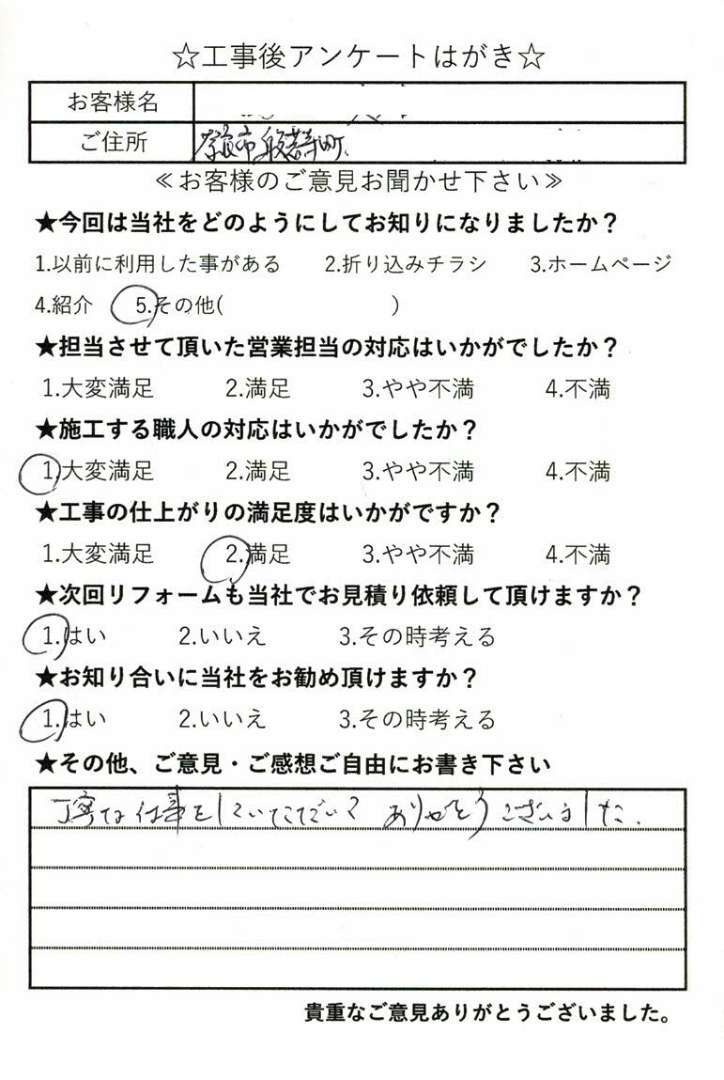 ☆工事後アンケートはがき☆
お客様名
ご住所 奈良市般若寺町
≪お客様のご意見お聞かせ下さい≫
★今回は当社をどのようにしてお知りになりましたか？
1.以前に利用した事がある 2.折り込みチラシ 3.ホームページ
4.紹介 5.その他( )
★担当させて頂いた営業担当の対応はいかがでしたか？
1.大変満足 2.満足 3.やや不満 4.不満
★施工する職人の対応はいかがでしたか？
1.大変満足 2.満足 3.やや不満 4.不満
★工事の仕上がりの満足度はいかがですか？
1.大変満足 2.満足 3.やや不満 4.不満
★次回リフォームも当社でお見積り依頼して頂けますか？
1.はい 2.いいえ 3.その時考える
★お知り合いに当社をお勧め頂けますか？
1.はい 2.いいえ 3.その時考える
★その他、ご意見・ご感想ご自由にお書き下さい
丁寧な仕事をしていただいて ありがとうございました.
貴重なご意見ありがとうございました。